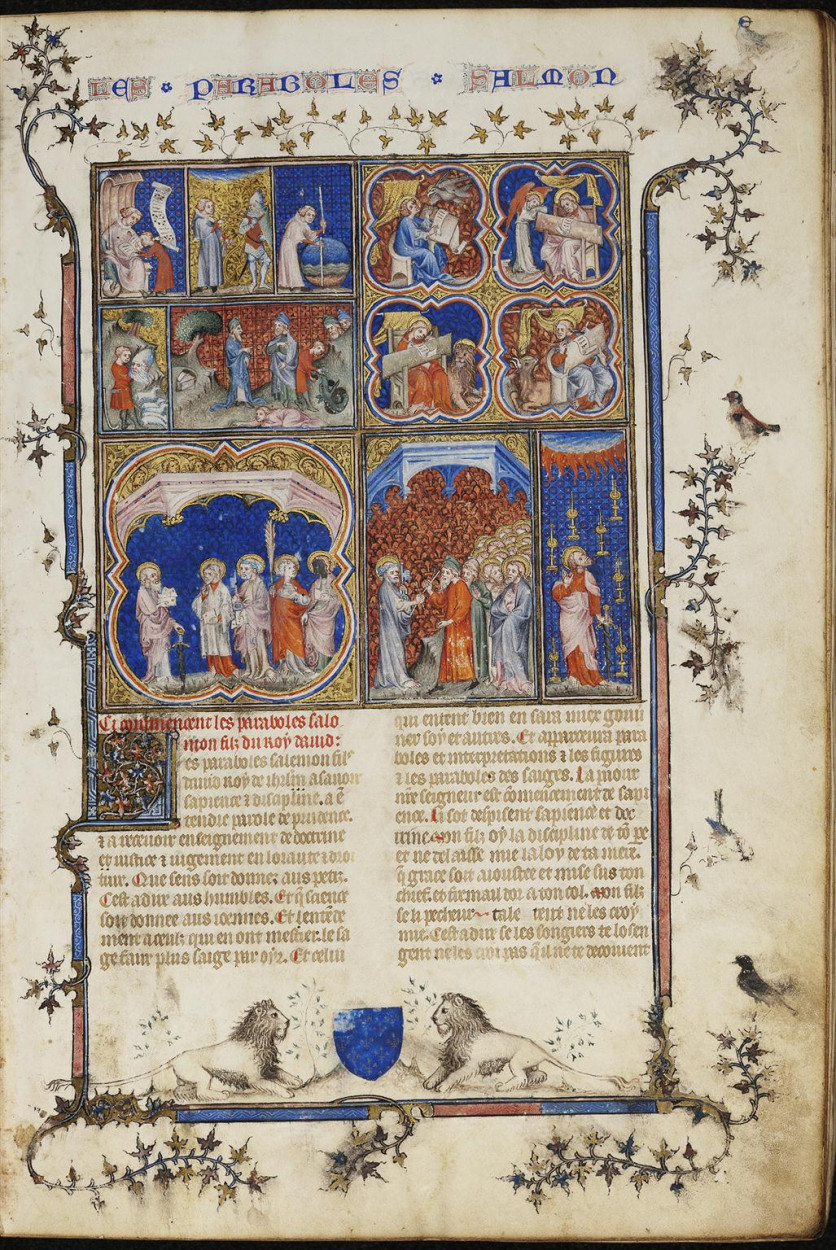 LES PARABOLES SALMON
Ci commencent les paraboles salo
mon filz du Roy dauid:
es paraboles salemon filz
dauid Roy de ihrlm a sauoir
sapience & discipline. a
tendre parole de prudence.
& a receuoir enseignement de doctrine
et iustice & iugement en loiaute & droi
ture. Que sens soit donnez aus petiz.
Cest a dire aus humbles. Et q̄ science
soit donnee aus ioennes. Et lentēde
ment a ceulz qui en ont mestier. le sa
ge sair plus saige par oyr. Et celui
qui entent bien en sara miex gouu
ner soy et autres. Et apparceura para
boles et interpretations & les figures
& les paraboles des saiges. La paour
nr̄e seigneur est cōmencement de sapi
ence. Li sot despisent sapience et doc
trine. Mon filz oy la discipline de tō pe
re et ne delaisse mie la loy de ta mere.
q̄ grace soit aioustee et mise sus ton
chief. et fremail dor a ton col. Mon filz
se li pecheur tale tent ne les croy
mie. Cest a dire se les losengiers te losen
gent ne les croi pas q̄ il ne te decoiuent